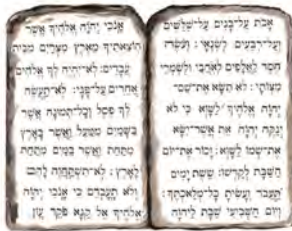 אנכי יהוה אלהיך אשר
הוצאתיך מארץ מצרים מבית
עבדים: לא-יהיה לך אלהים
אחרים על-פני: לא-תעשה
לך פסל וכל-תמונה אשר
בשמים ממעל ואשר בארץ
מתחת ואשר במים מתחת
לארץ: לא-תשתחוה להם
ולא תעבדם כי אנכי יהוה
אלהיך אל קנא פקד עון
אבת על-בנים על-שלשים
ועל-רבעים לשנאי: ועשה
חסד לאלפים לאהבי ולשמרי
מצותי: לא תשא את-שם-
יהוה אלהיך לשוא כי לא
ינקה יהוה את אשר-ישא
את-שמו לשוא: זכור את-יום
השבת לקדשו: ששת ימים
תעבד ועשית כל-מלאכתך:
ויום השביעי שבת ליהוה